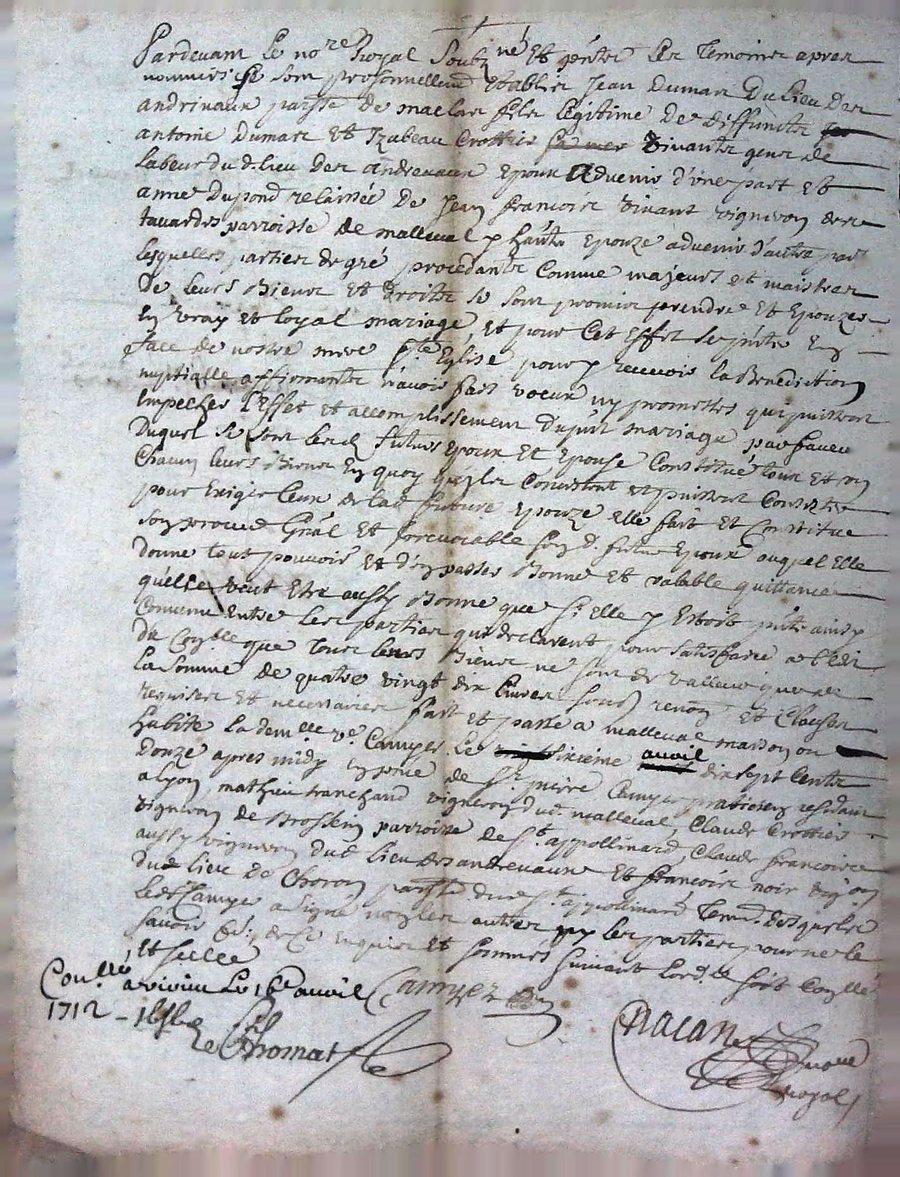 Pardevant Le no.re Royal Soubz.né Et pñtz Les Temoins apres
nommés se sont personnellem.t Establis Jean Dumas Du Lieu Des
andrivaux parsse de maclas fils Legitime De deffunctz
antoine Dumas Et Izabeau Crottier vivants gens de
Labeur dud. Lieu des andrevaux Epoux advenir d'vne part et
anne Dupond relaissée De Jean francois vivant vigneron
tavardes parroisse de malleval y hãnte Epouze advenir d'autre part
Lesquelles parties de gré procedants Comme majeurs et maistres
De leurs Biens Et droits se sont promis prendre et Epouzer
En vray et loyal mariage, et pour Cet Effet se pñtr En
face de nostre mere s.te Eglise pour y recevoir la Benediction
nuptialle affirmants n'avoir fait voeux ny promettes qui puissent
Empecher l'Effet et accomplissement du pñt mariage par faveur
Duquel se sont lesd. futurs Epoux et Epouse Constitué tous et un
Chacun leurs Biens En quoy qu'ils Consistent et puissent Consister
pour Exiger Ceux de lad. future Epouze elle fait et Constitue
son procur. Gñal et Irrevocable son d. futur Epoux auquel Elle
donne tout pouvoir et d'en passer Bonne Et valable quittance
qu'elle veut Etre aussy Bonne que sy Elle y Estoit pñte ainsy
Convenu Entre les parties qui declarent pour satisfaire a l'Edi
du Con.lle que tous leurs Biens ne sont de valleur que de
la somme de quatre vingt dix livres sous renon. et Clauses
requises et necessaires fait et passé a malleval maison ou
habite la dem.lle v.e Camyer Le sixieme avril dix sept Cents
donze apres midy En pñce de s.r pierre Camyer praticien residant
a lyon, mathieu tranchand vigneron dud. malleval, Claude Crottier
vigneron de Brossein parroisse de s.t appollinard, Claude francoise
aussy vigneron dud. lieu des antrevaux et francois noir vig.on
dud. lieu de Choron parsse. dud. s.t appollinard Tem. desquels
Led. s. Camyer a signé non les autres ny les parties pour ne le
savoir de Ce Enquis et sommés suivant lord.ce soit Conllé
Et scellé
Con.llé a vivieu Le 16e avril Camyer
1712 -
Thomas
Nacan
royal